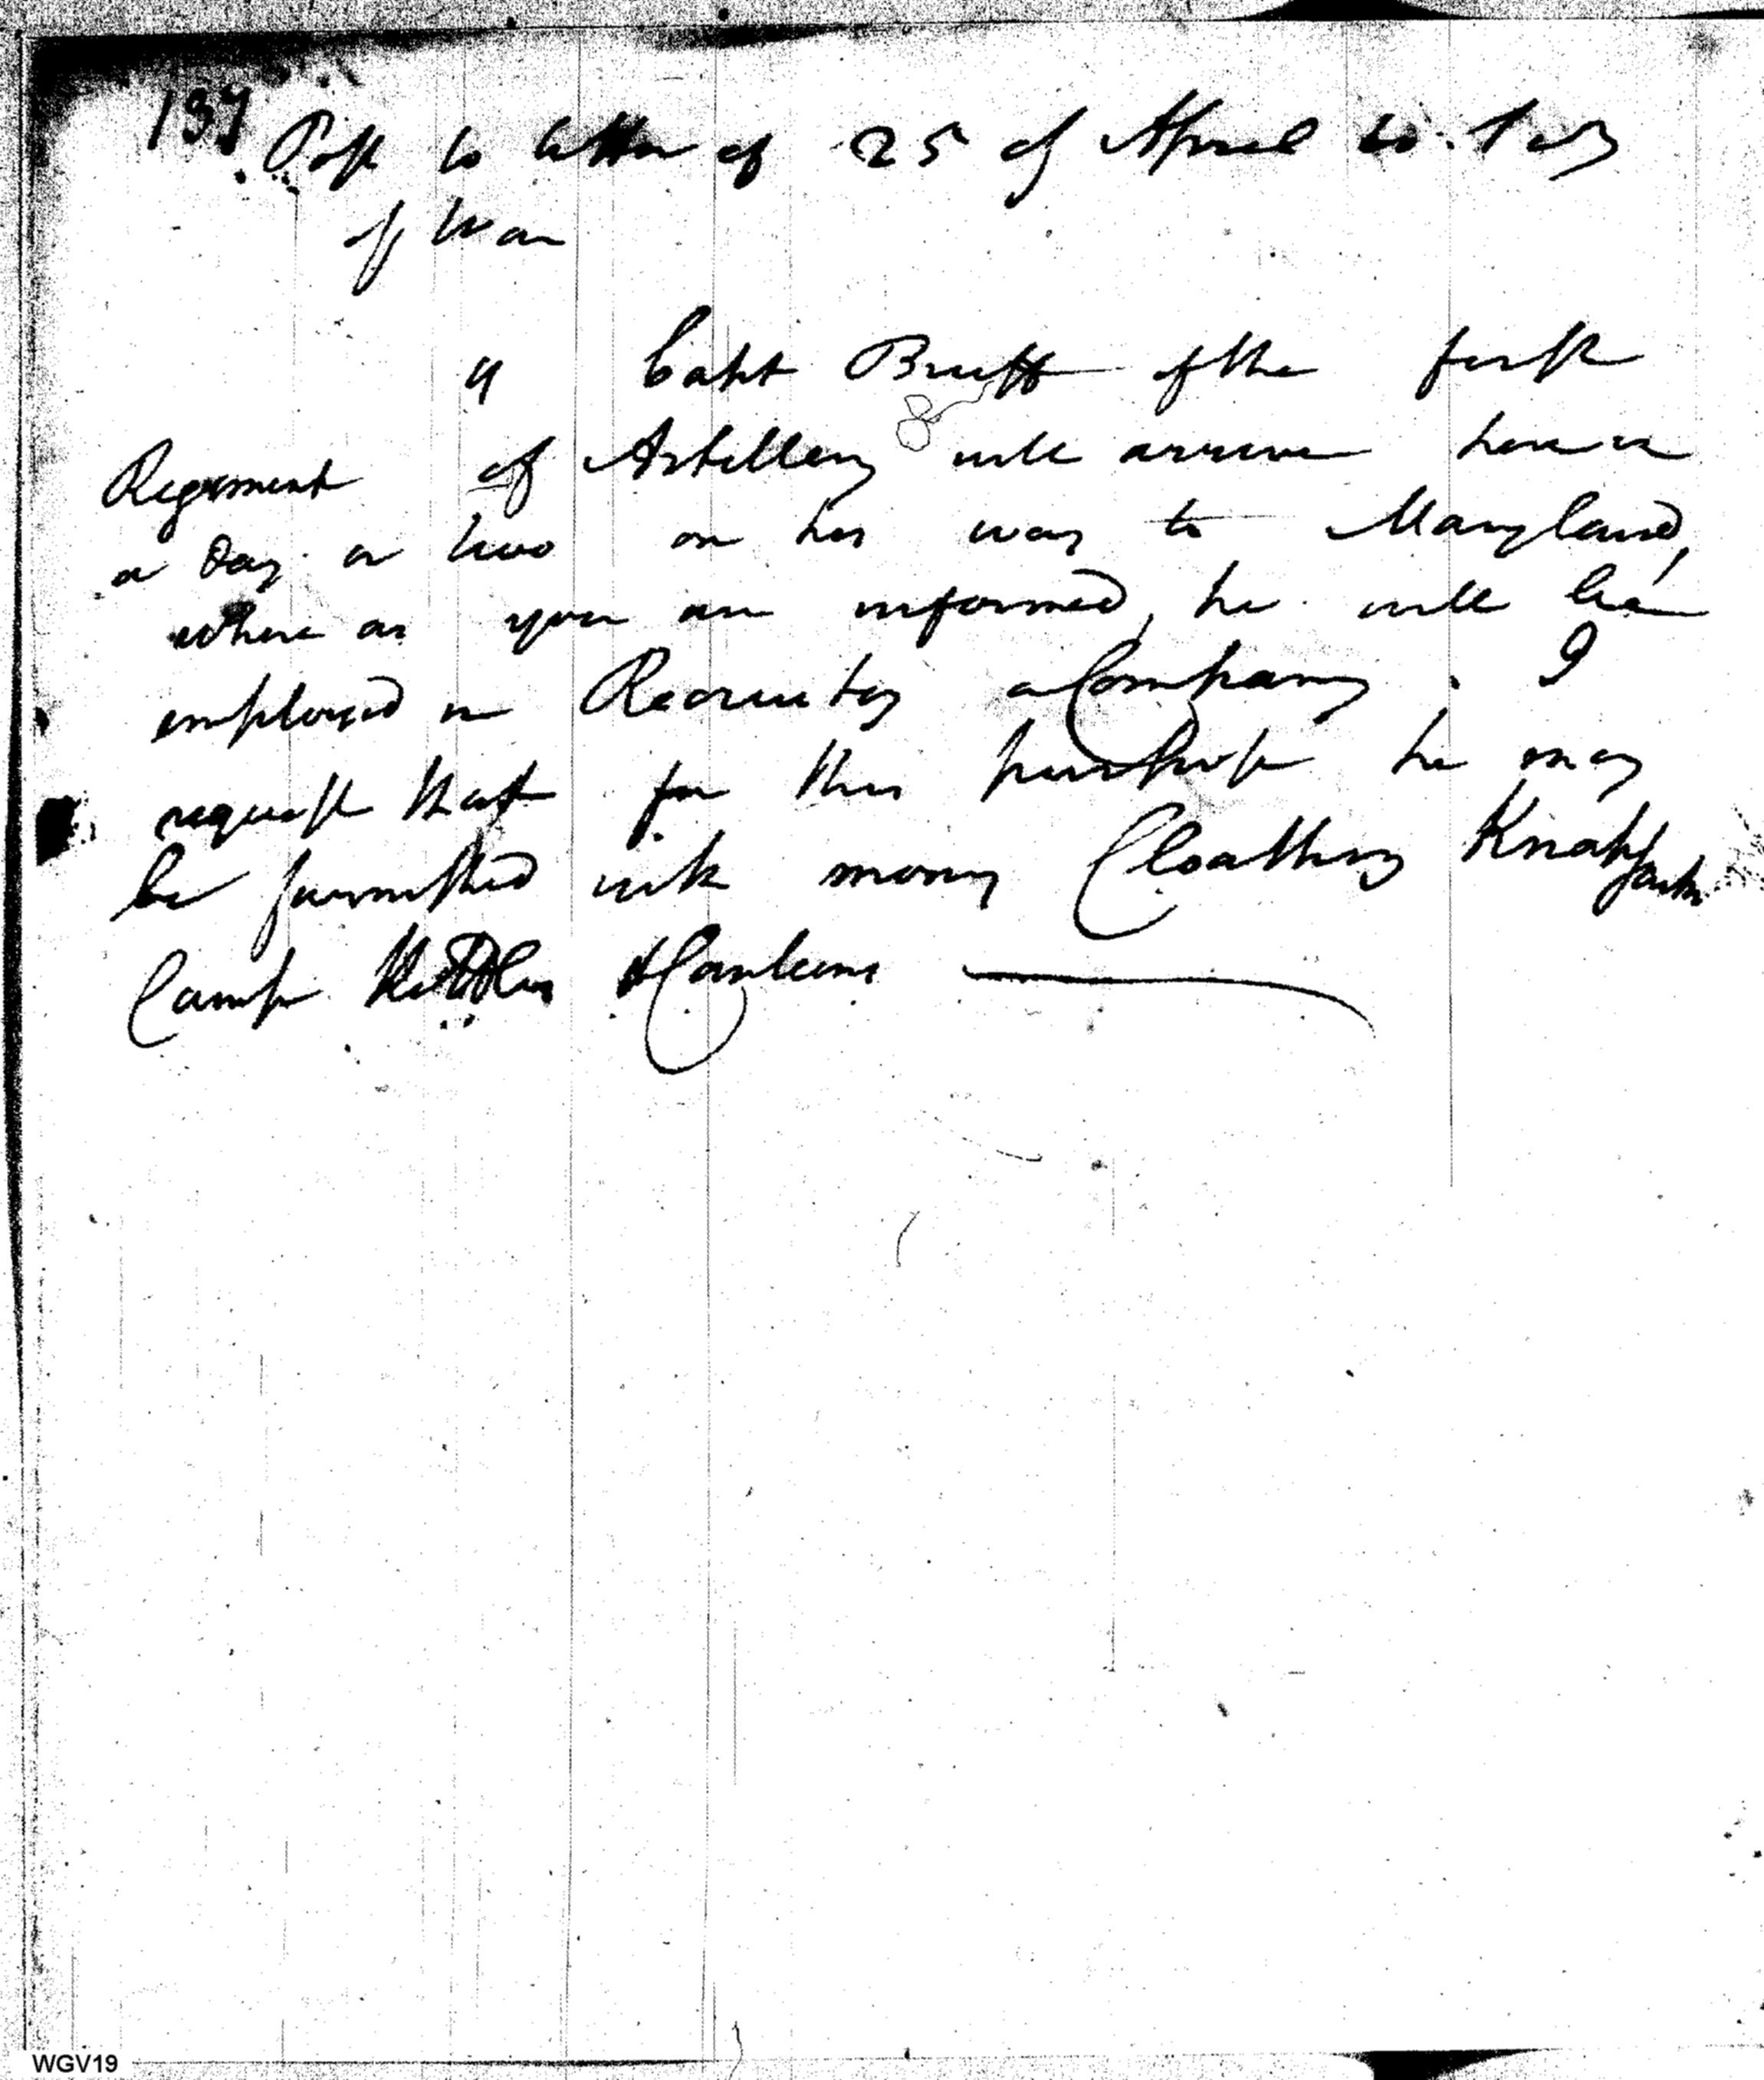 137
Post to letter of 25 of April to Secy
of War
" Capt Bruff of the first
Regiment of Artillery will arrive here in
a day or two on his way to Maryland,
where as you are informed, he will be
employed in Recruitg a Company. I
request that for this purpose he may
be furnished with money Cloathing Knapsacks
Camp Kettles & Canteens
WGV19